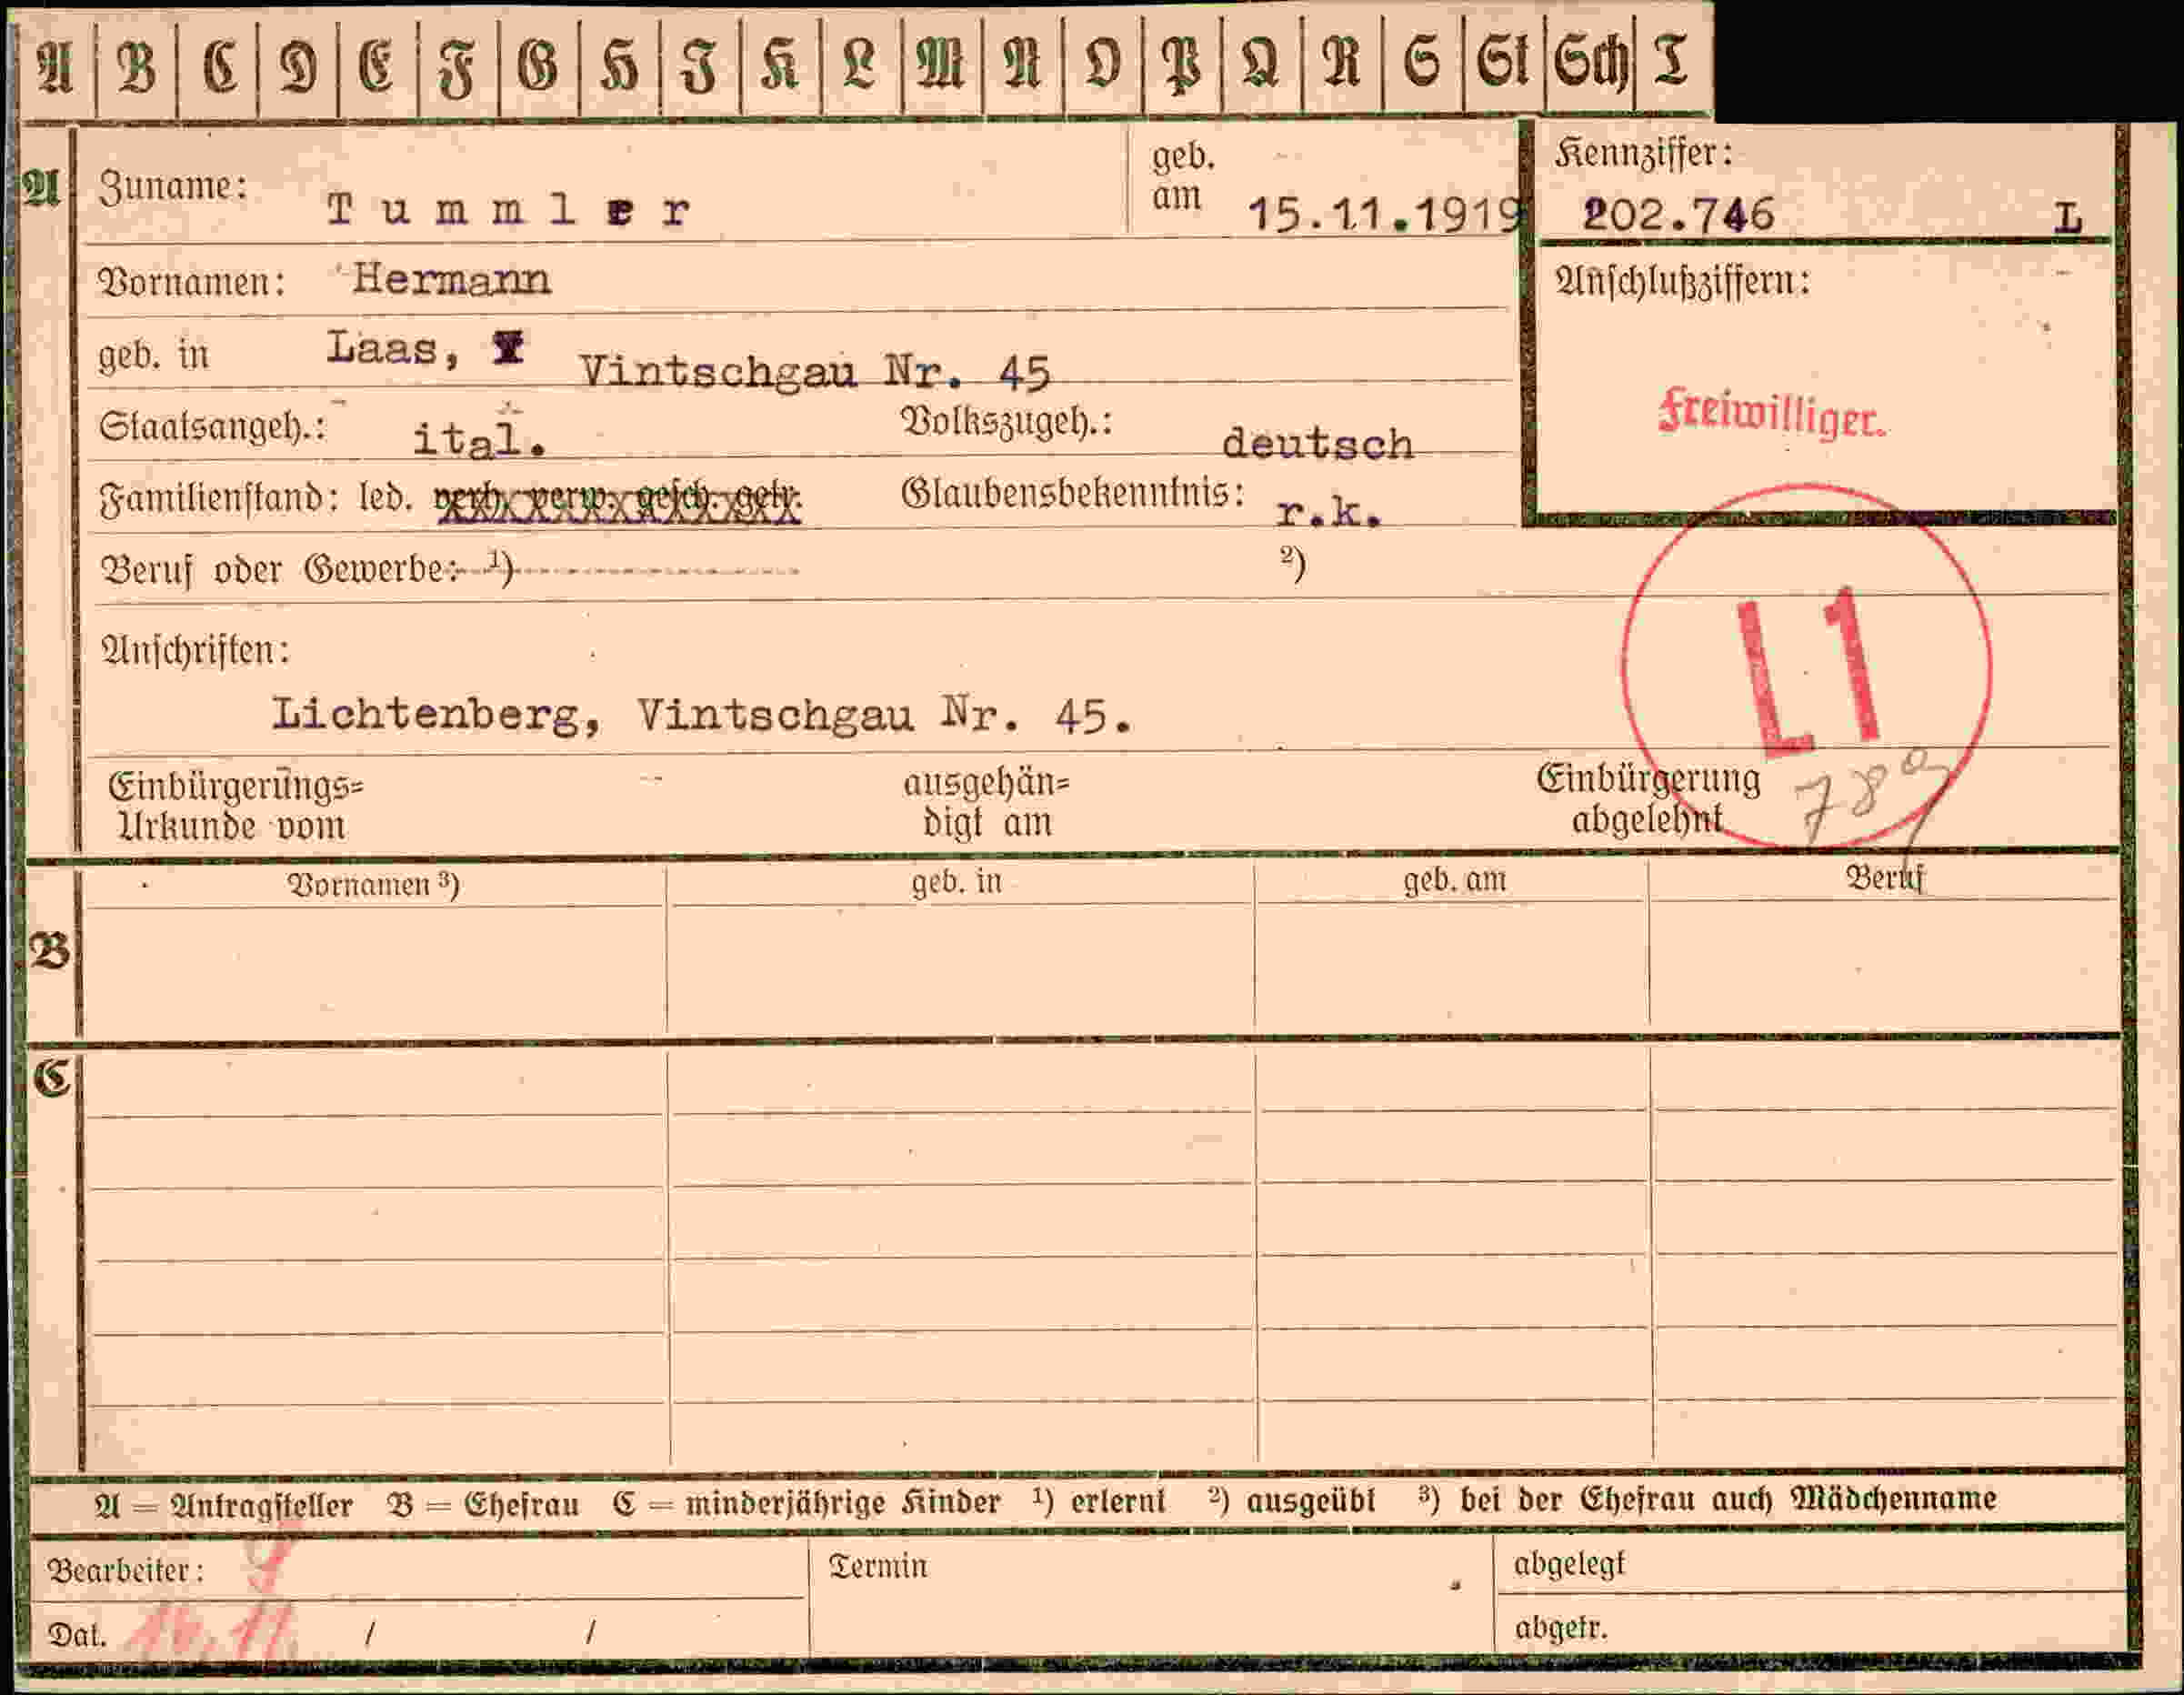 A B C D E F G H J K L M N O P Q R S St Sch T
A Zuname: Tummler geb. am 15.11.1919 Kennziffer: 202.746 L
Vornamen: Hermann Anschlußziffern:
geb. in Laas, Vintschgau Nr. 45
Freiwilliger.
Staatsangeh.: ital. Volkszugeh.: deutsch
Familienstand: led. verh. verw. gesch. getr. Glaubensbekenntnis: r.k.
Beruf oder Gewerbe: 1) 2)
L1
Anschriften:
Lichtenberg, Vintschgau Nr. 45.
Einbürgerungs= ausgehän= Einbürgerung
Urkunde vom digt am abgelehnt
Vornamen 3) geb. in geb. am Beruf
B
C
A = Antragsteller B = Ehefrau C = minderjährige Kinder 1) erlernt 2) ausgeübt 3) bei der Ehefrau auch Mädchenname
Bearbeiter: Termin abgelegt
Dat. / / abgetr.